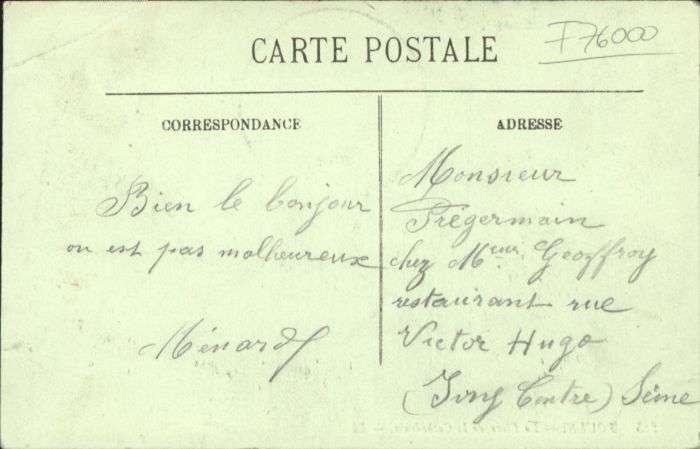 CARTE POSTALE
F76000
CORRESPONDANCE
Bien le bonjour
on est pas malheureux
Ménard
ADRESSE
Monsieur
Frégermain
chez Mme Geoffroy
restaurant rue
Victor Hugo
(Ivry Centre) Seine